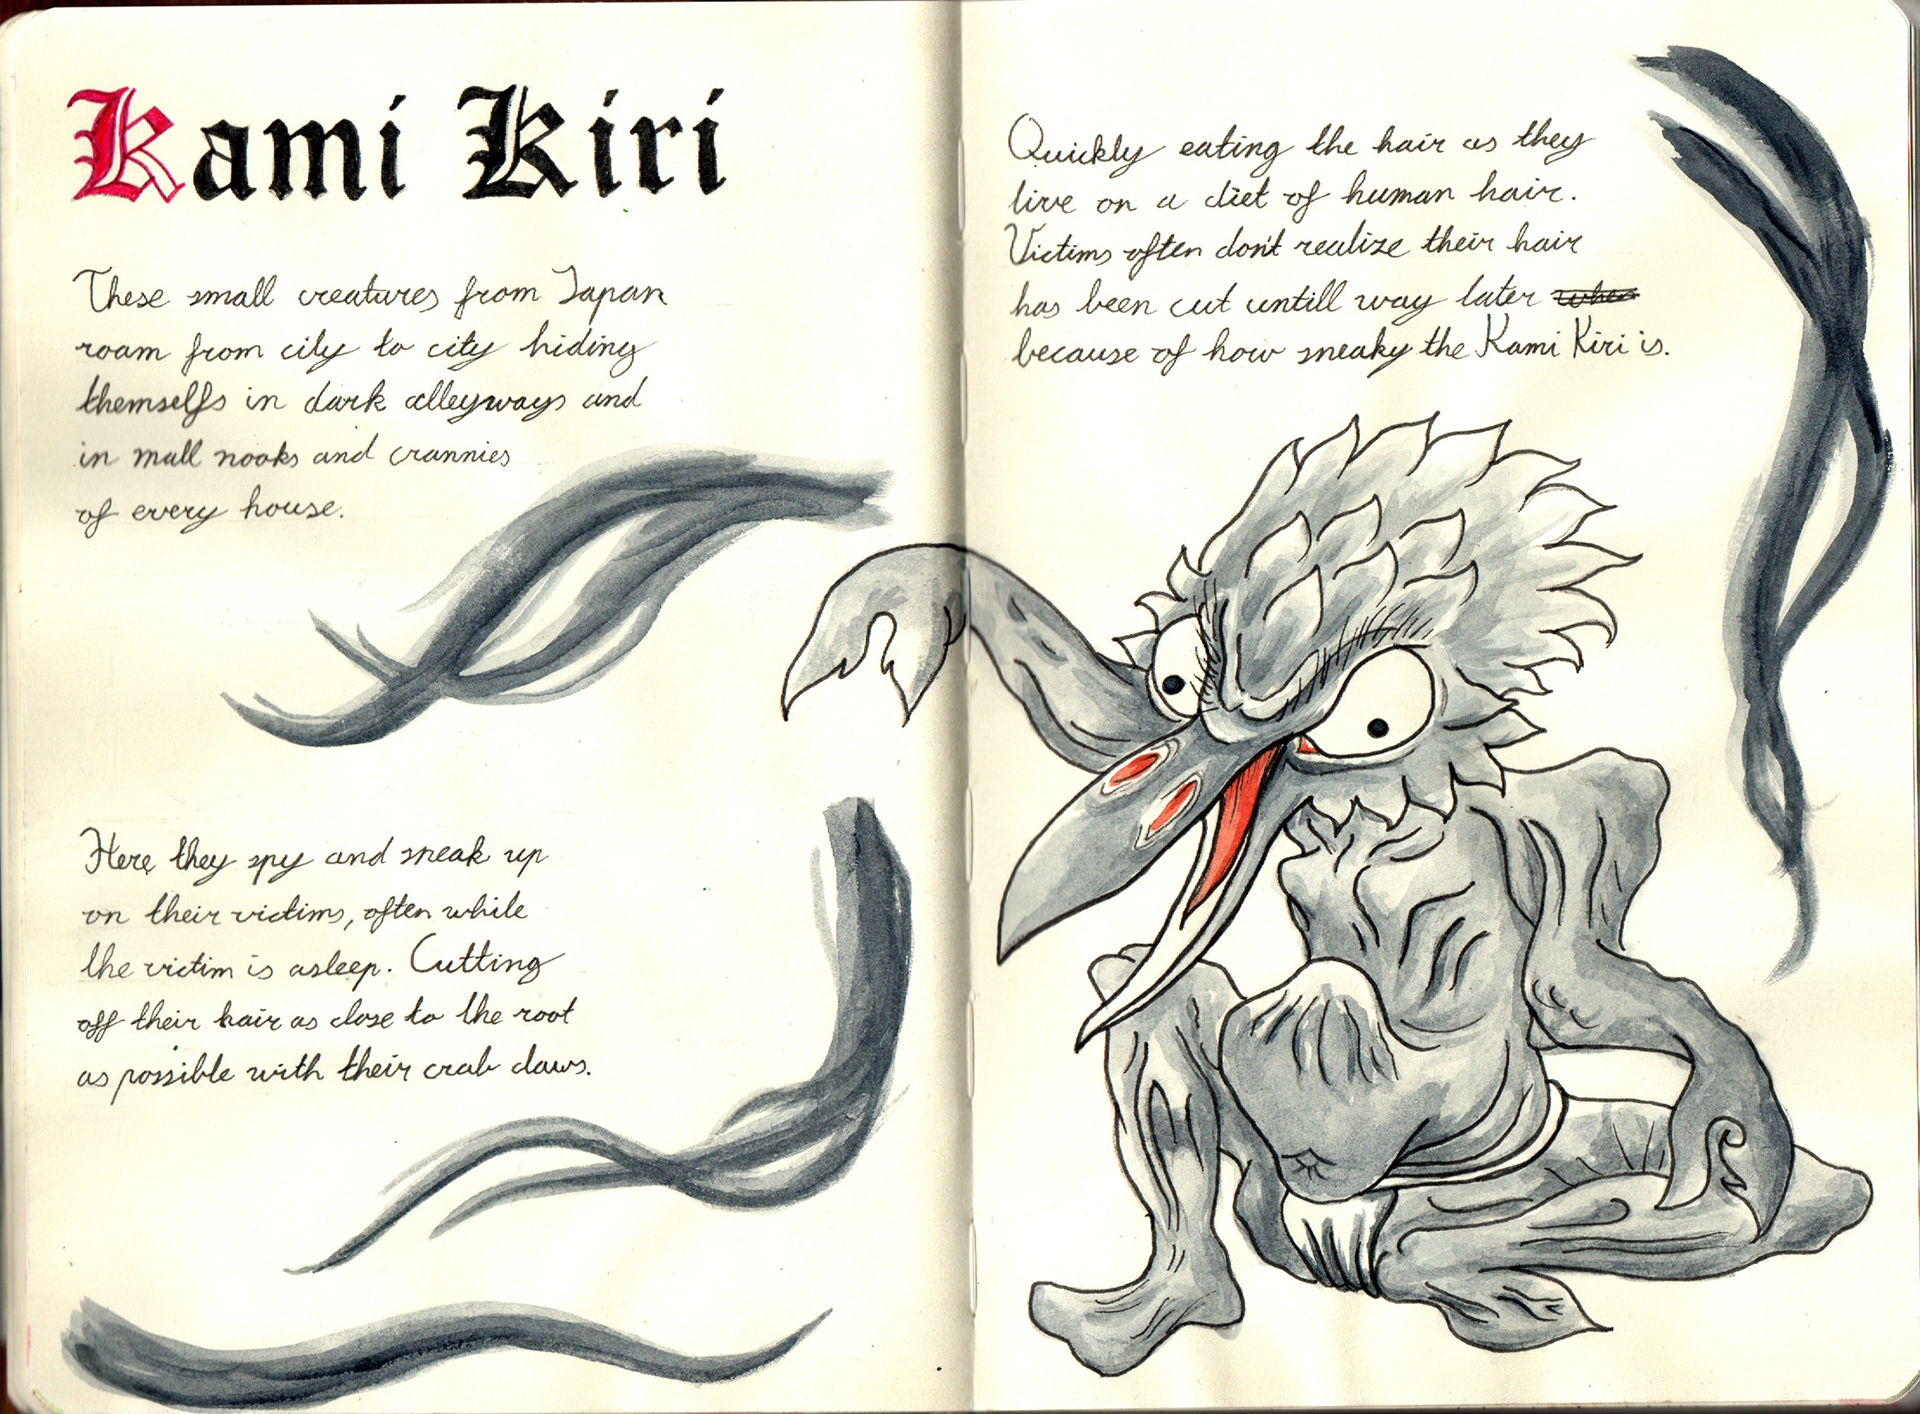 Kami Kiri
These small creatures from Japan
roam from city to city hiding
themselfs in dark alleyways and
in mall nooks and crannies
of every house.
Here they spy and sneak up
on their victims, often while
the victim is asleep. Cutting
off their hair as close to the root
as possible with their crab claws.
Quickly eating the hair as they
live on a diet of human hair.
Victims often don't realize their hair
has been cut untill way later when
because of how sneaky the Kami Kiri is.